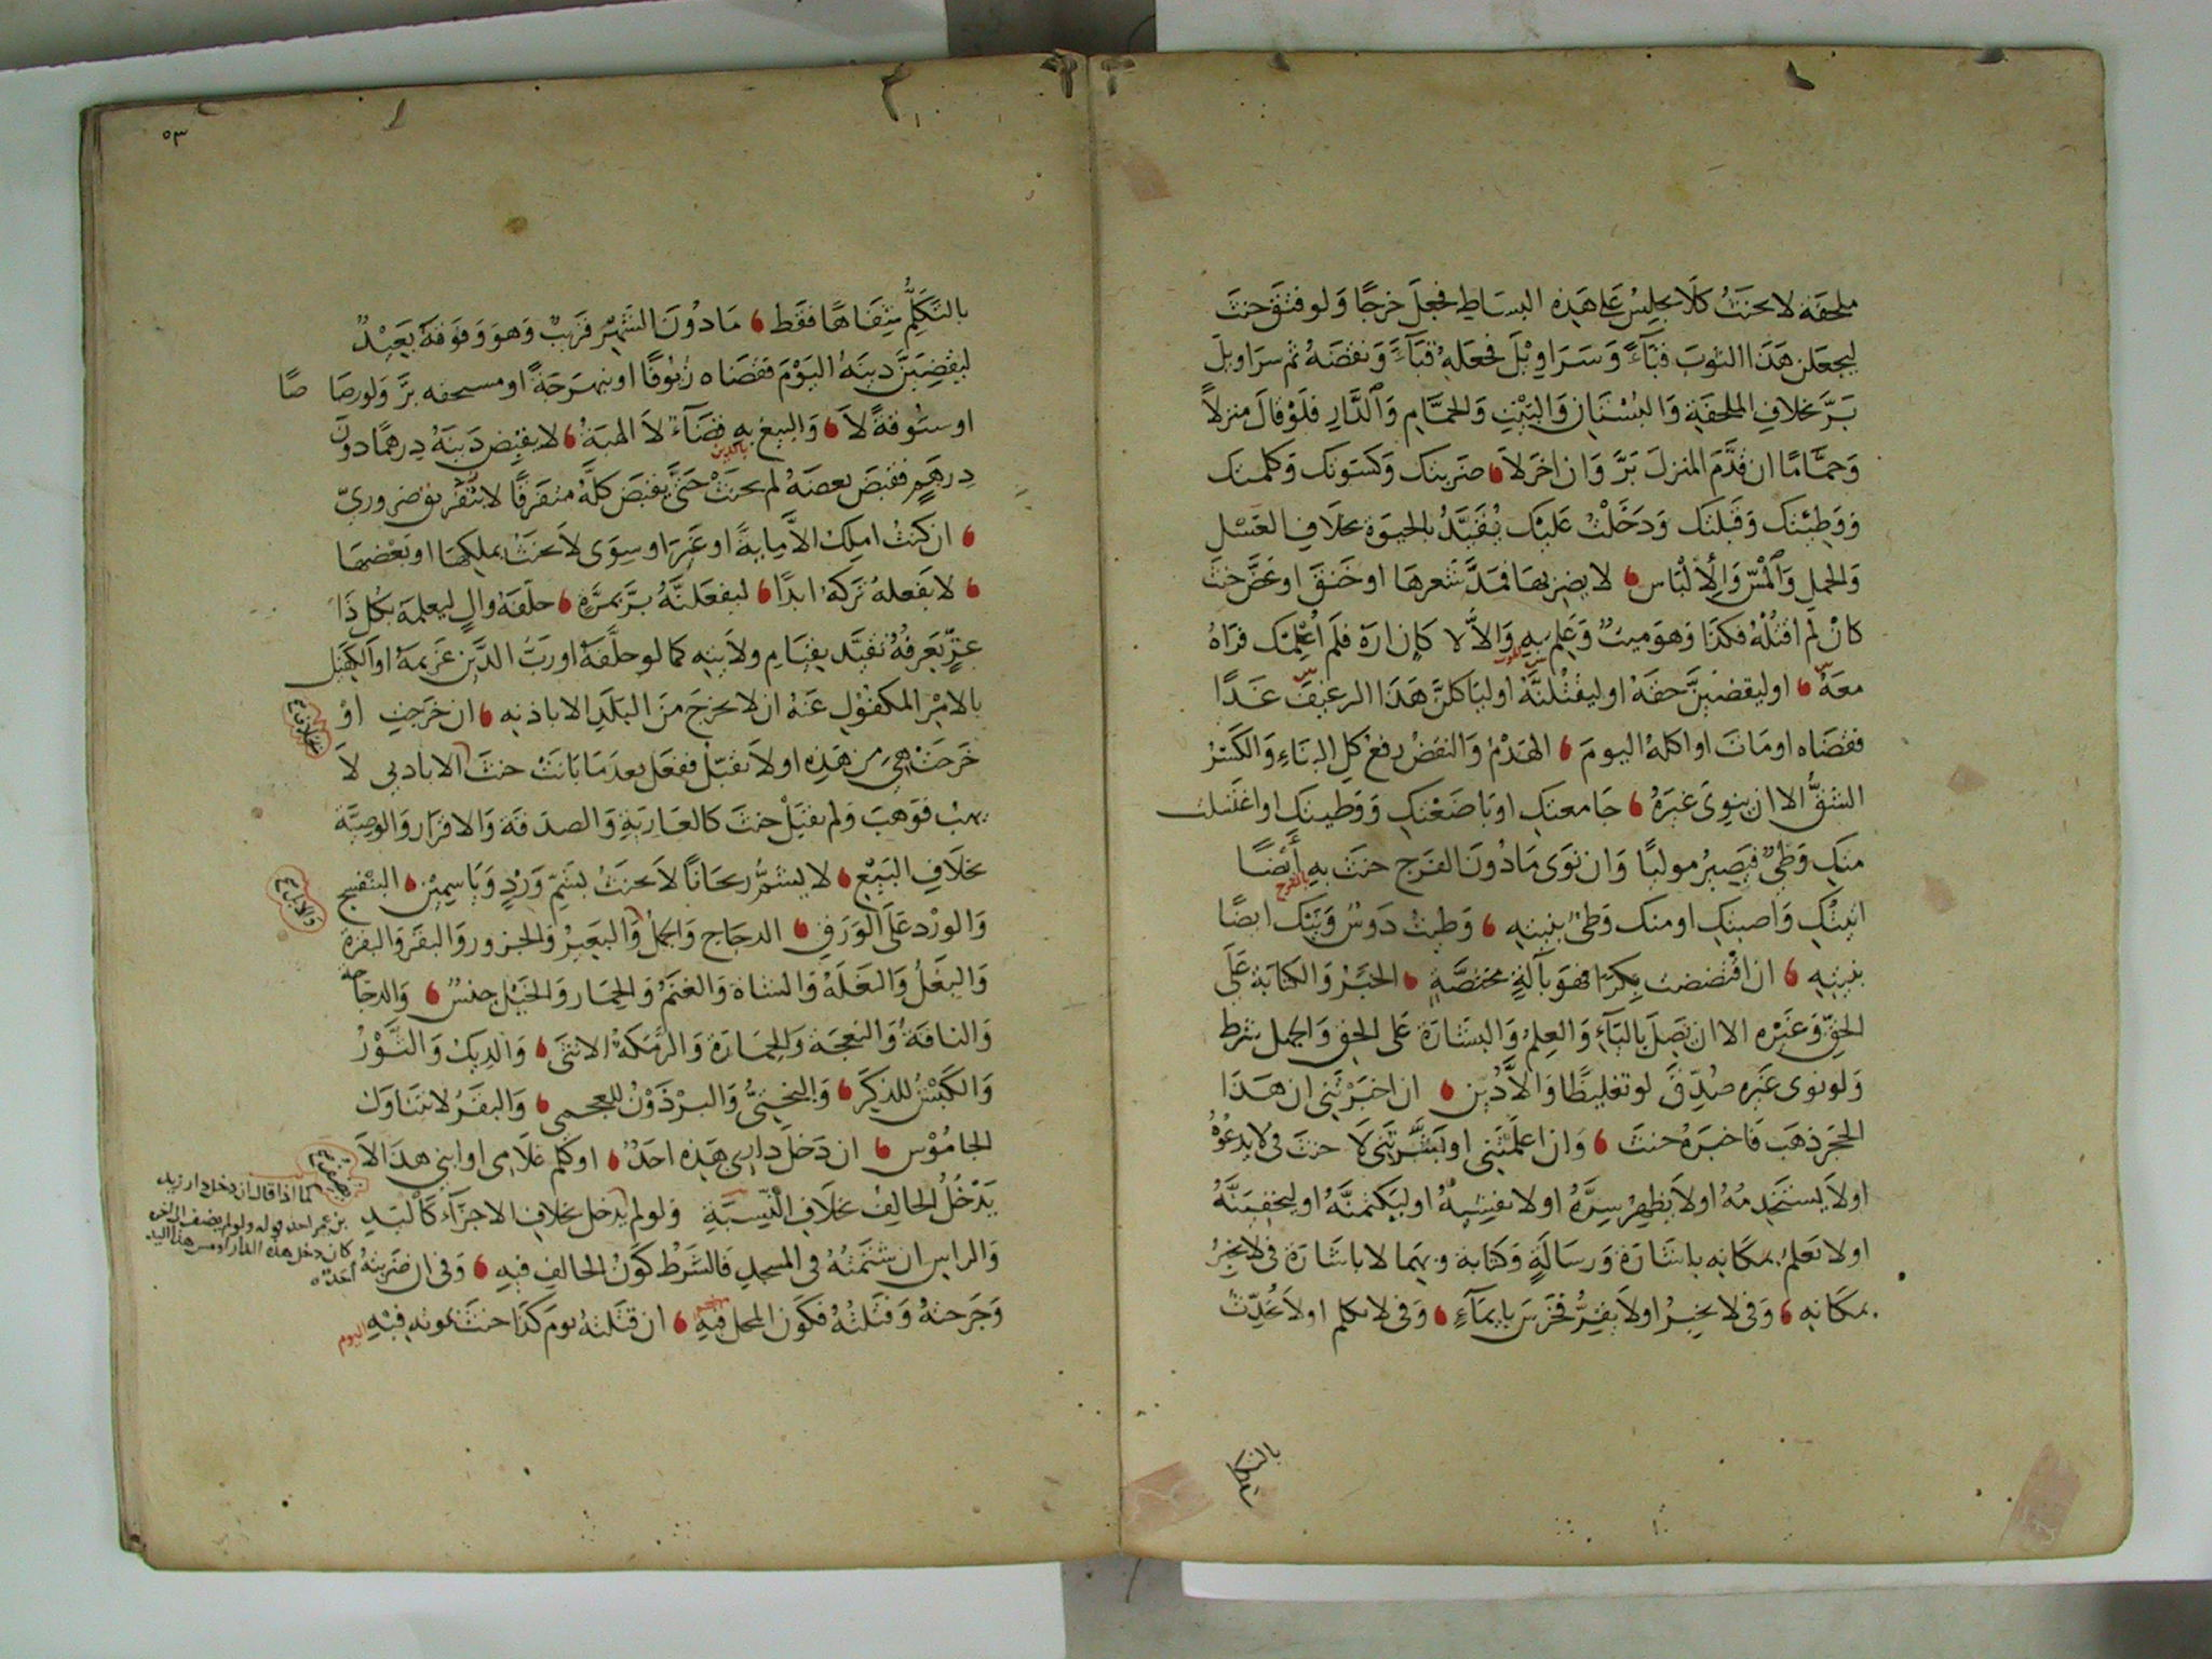 ملحفة لا يحنث كلا يجلس على هذه البساط فجعل خرجًا ولو فتق حنث
ليجعلن هذا الثوب قباءً وسراويل فجعله قباءً ونقضه ثم سراويل
برّ بخلاف الملحفة والبستان والبيت والحمّام والدّار فلو قال منزلاً
وحمّامًا ان قدّم المنزل برّ وان اخر لا ضربتك وكسوتك وكلمتك
ووطئتك وقبلتك ودخلت عليك يُقيّد بالحيوة بخلاف الغسل
والحمل والمسّ والالباس لا يضربها فمدّ شعرها او خنق او عضّ حنث
كان لم اقتله فكذا وهو ميت وعلم به والاّ لا كان اره فلم اعلمك فراه
معه او ليقضينّ حقه او ليقتلنّه او ليأكلنّ هذا الرغيف غدًا
فقضاه او مات او اكله اليوم الهدم والنقض رفع كل البناء والكسر
الشقّ الا ان ينوي غيره جامعتك او باضعتك ووطيتك او اغتسلت
منك وطئ فيصير موليًا وان نوى مادون الفرج حنث به أيضًا
بالفرج
اتيتك واصبتك او منك وطئ بنيته وطئت دوس وبيتك ايضًا
بنيته ان اقتضضت بكرًا فهو بآلةٍ مختصّةٍ الخبر والكتابة على
الحقّ وغيره الا ان يصل بالباء والعلم والبشارة على الحق والجهل شرط
ولو نوى غيره صُدّق لو تغليظًا والاّ دُيّن ان اخبرتني ان هذا
الحجر ذهب فاخبره حنث وان اعلمتني او بشّرتني لا حنث في لا يدعوه
اولا يستخدمه اولا يظهر سرّه اولا يفشيه او ليكتمنّه او ليخفينّه
اولا تعلم بمكانه باشارة ورسالةٍ وكتابة وبهما لا باشارة في لا يخبر
بمكانه وفي لا يخبر اولا يقرّ فخرس بايماءٍ وفي لا يكلم اولا يحدّث
٥٣
بالتكلّم شفاهًا فقط مادون الشهر قريبٌ وهو وفوقه بعيدٌ
ليقضينّ دينه اليوم فقضاه زيوفًا او نبهرجةً او مستحقه برّ ولو رصاصًا
او ستوقةً لا والبيع به قضاءٌ لا الهبة لا يقبض دينه درهمًا دون
بالدين
درهمٍ فقبض بعضه لم يحنث حتّى يقبض كلّه متفرقًا لا بتفريق ضروريّ
ان كنت املك الاّ مايةً او غير او سوى لا يحنث بملكها او بعضها
لا يفعله تركه ابدًا ليفعلنّه برّ بمرّةٍ حلّفه والٍ ليعلمه بكل ذا
عرٍّ يعرفه تقيّد بقيام ولايته كما لو حلّفه او ربّ الدّين غريمه او الكفيل
بالامر المكفول عنه ان لا يخرج من البلد الا باذنه ان خرجت او
خرجت هي من هذه اولا تقبّل ففعل بعد ما بانت حنث الا باذني لا
يهب فوهب ولم يقبل حنث كالعارية والصدقة والاقرار والوصيّة
بخلاف البيع لا يشمّ ريحانًا لا يحنث بشمّ وردٍ وياسمين البنفسج
والورد على الورق الدجاج والجمل والبعير والجزور والبقر والبقرة
والبغل والبغلة والشاة والغنم والحمار والخيل جنسٌ والدجاجة
والناقة والنعجة والحمارة والرّمكة الانثى والديك والثّور
والكبش للذكر والبختيّ والبرذون للعجمي والبقر لا يتناول
الجاموس ان دخل داري هذه احدٌ او كلّم غلامي او ابني هذا الاّ
يدخل الحالف بخلاف النّسبة ولو لم يدخل بخلاف الاجزاء كاليد
والراس ان شتمته في المسجد فالشرط كون الحالف فيه وفي ان ضربته
وجرحته وقتلته فكون المحل فيه ان قتلته يوم كذا حنث بموته فيه
اليوم
كما اذا قال ان دخل دار زيد
بن عمر احد
احدٌ